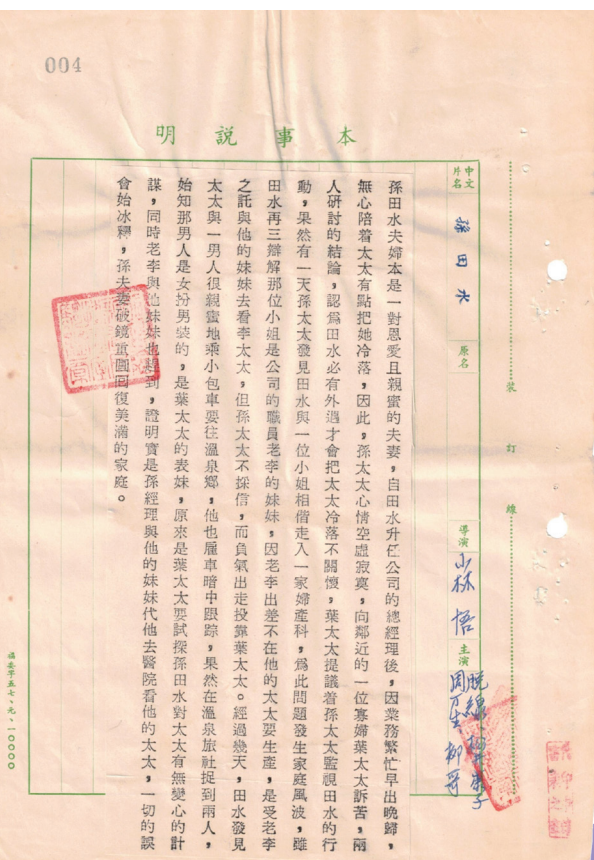 004
本事說明
中文片名
孫田水
原名
導演
小林悟
主演
周万生
柳哥
孫田水夫婦本是一對恩愛且親蜜的夫妻，自田水升任公司的總經理後，因業務繁忙早出晚歸，
無心陪着太太有點把她冷落，因此，孫太太心情空虛寂寞，向鄰近的一位寡婦葉太太訴苦，兩
人研討的結論，認爲田水必有外遇才會把太太冷落不關懷，葉太太提議着孫太太監視田水的行
動，果然有一天孫太太發見田水與一位小姐相偕走入一家婦產科，爲此問題發生家庭風波，雖
田水再三辯解那位小姐是公司的職員老李的妹妹，因老李出差不在他的太太要生產，是受老李
之託與他的妹妹去看李太太，但孫太太不採信，而負氣出走投靠葉太太。經過幾天，田水發見
太太與一男人很親蜜地乘小包車要往溫泉鄉，他也雇車暗中跟踪，果然在溫泉旅社捉到兩人，
始知那男人是女扮男裝的，是葉太太的表妹，原來是葉太太要試探孫田水對太太有無變心的計
謀，同時老李與他妹妹也趕到，證明實是孫經理與他的妹妹代他去醫院看他的太太，一切的誤
會始冰釋，孫夫妻破鏡重圓回復美滿的家庭。
裝
訂
線
福委字五七、元、一〇〇〇〇